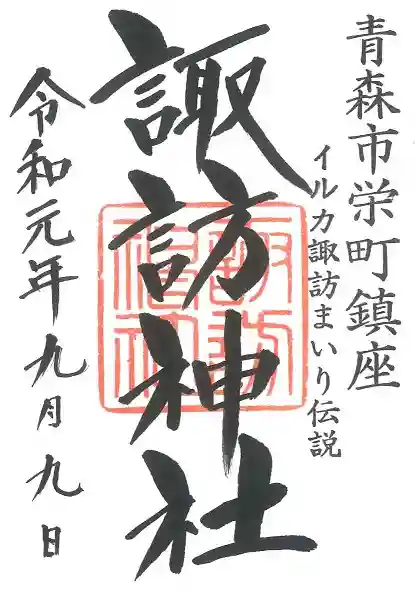 青森市栄町鎮座
イルカ諏訪まいり伝説
諏訪神社
令和元年九月九日
諏訪神社